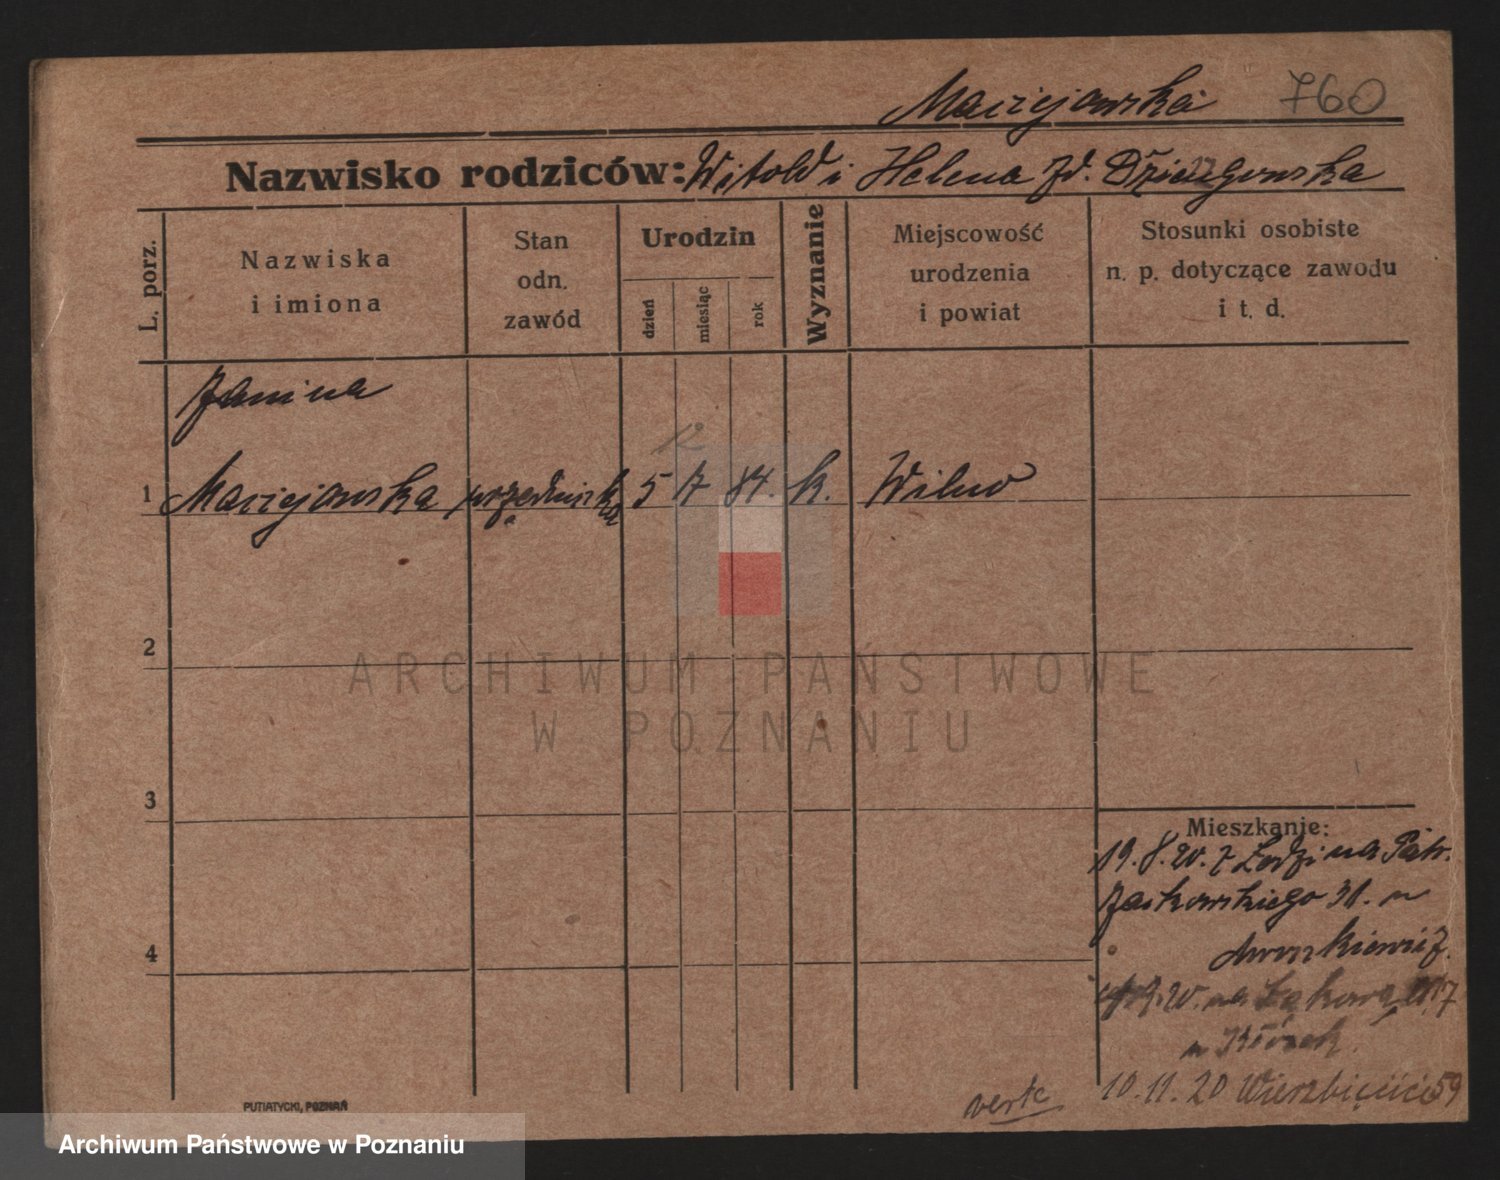 Maciejowska 760
Nazwisko rodziców: Witold i Helena zd.
L. porz.
Nazwiska
i imiona
Stan
odn.
zawód
Urodzin
dzień
miesiąc
rok
Wyznanie
Miejscowość
urodzenia
i powiat
Stosunki osobiste
n. p. dotyczące zawodu
i t. d.
Janina
1 Maciejowska urzędniczka 5 84. k. Wilno
2
ARCHIWUM PAŃSTWOWE
W POZNANIU
3
Mieszkanie:
19.8.20. z Łodzi na Patr.
Jackowskiego 31. u
4
20. na Łąkową 17
u
10.11.20 Wierzbięcice 59
verte
PUTIATYCKI, POZNAŃ
Archiwum Państwowe w Poznaniu